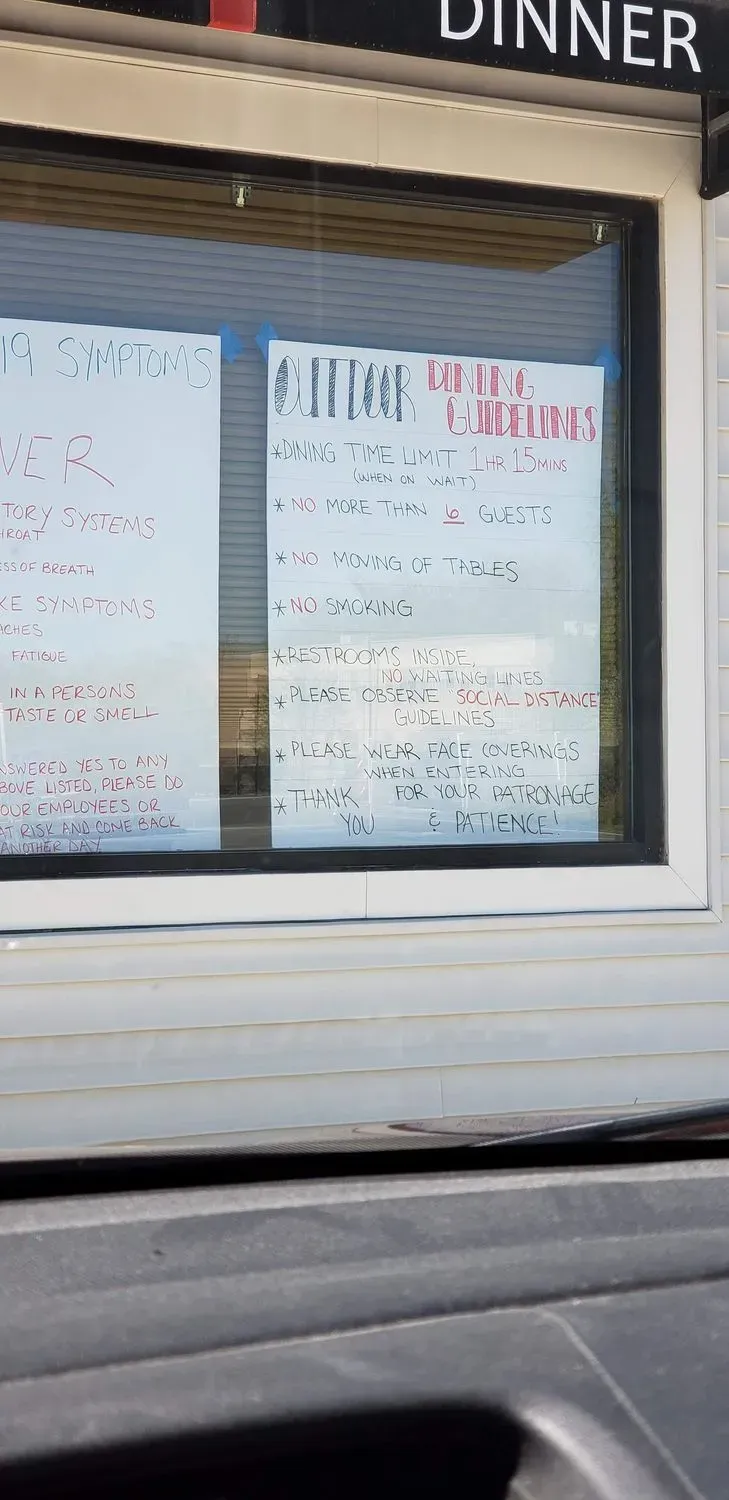 DINNER
19 SYMPTOMS
VER
TORY SYSTEMS
HROAT
ESS OF BREATH
KE SYMPTOMS
ACHES
FATIGUE
IN A PERSONS
TASTE OR SMELL
NSWERED YES TO ANY
BOVE LISTED, PLEASE DO
OUR EMPLOYEES OR
AT RISK AND COME BACK
ANOTHER DAY.
OUTDOOR DINING
GUIDELINES
*DINING TIME LIMIT 1HR 15MINS
(WHEN ON WAIT)
* NO MORE THAN 6 GUESTS
*NO MOVING OF TABLES
*NO SMOKING
*RESTROOMS INSIDE,
NO WAITING LINES
*PLEASE OBSERVE "SOCIAL DISTANCE"
GUIDELINES
*PLEASE WEAR FACE COVERINGS
WHEN ENTERING
*THANK YOU FOR YOUR PATRONAGE
& PATIENCE!